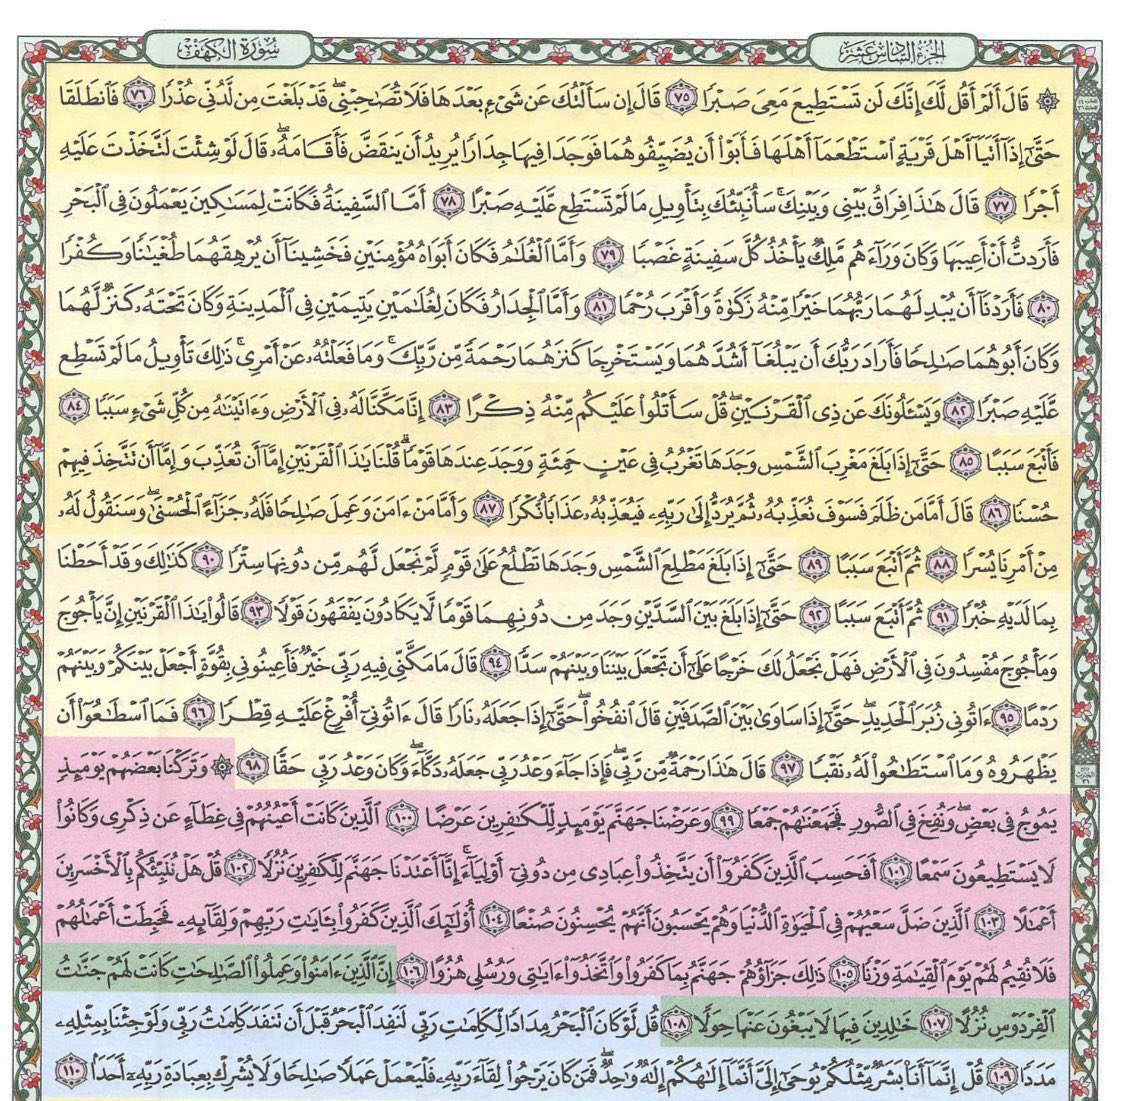 الجزء السادس عشر
سورة الكهف
۞ قَالَ أَلَمْ أَقُل لَّكَ إِنَّكَ لَن تَسْتَطِيعَ مَعِىَ صَبْرًا ٧٥ قَالَ إِن سَأَلْتُكَ عَن شَىْءٍۭ بَعْدَهَا فَلَا تُصَٰحِبْنِى ۖ قَدْ بَلَغْتَ مِن لَّدُنِّى عُذْرًا ٧٦ فَٱنطَلَقَا
حَتَّىٰٓ إِذَآ أَتَيَآ أَهْلَ قَرْيَةٍ ٱسْتَطْعَمَآ أَهْلَهَا فَأَبَوْا۟ أَن يُضَيِّفُوهُمَا فَوَجَدَا فِيهَا جِدَارًا يُرِيدُ أَن يَنقَضَّ فَأَقَامَهُۥ ۖ قَالَ لَوْ شِئْتَ لَتَّخَذْتَ عَلَيْهِ
أَجْرًا ٧٧ قَالَ هَٰذَا فِرَاقُ بَيْنِى وَبَيْنِكَ ۚ سَأُنَبِّئُكَ بِتَأْوِيلِ مَا لَمْ تَسْتَطِع عَّلَيْهِ صَبْرًا ٧٨ أَمَّا ٱلسَّفِينَةُ فَكَانَتْ لِمَسَٰكِينَ يَعْمَلُونَ فِى ٱلْبَحْرِ
فَأَرَدتُّ أَنْ أَعِيبَهَا وَكَانَ وَرَآءَهُم مَّلِكٌ يَأْخُذُ كُلَّ سَفِينَةٍ غَصْبًا ٧٩ وَأَمَّا ٱلْغُلَٰمُ فَكَانَ أَبَوَاهُ مُؤْمِنَيْنِ فَخَشِينَآ أَن يُرْهِقَهُمَا طُغْيَٰنًا وَكُفْرًا
٨٠ فَأَرَدْنَآ أَن يُبْدِلَهُمَا رَبُّهُمَا خَيْرًا مِّنْهُ زَكَوٰةً وَأَقْرَبَ رُحْمًا ٨١ وَأَمَّا ٱلْجِدَارُ فَكَانَ لِغُلَٰمَيْنِ يَتِيمَيْنِ فِى ٱلْمَدِينَةِ وَكَانَ تَحْتَهُۥ كَنزٌ لَّهُمَا
وَكَانَ أَبُوهُمَا صَٰلِحًا فَأَرَادَ رَبُّكَ أَن يَبْلُغَآ أَشُدَّهُمَا وَيَسْتَخْرِجَا كَنزَهُمَا رَحْمَةً مِّن رَّبِّكَ ۚ وَمَا فَعَلْتُهُۥ عَنْ أَمْرِى ۚ ذَٰلِكَ تَأْوِيلُ مَا لَمْ تَسْطِع
عَّلَيْهِ صَبْرًا ٨٢ وَيَسْـَٔلُونَكَ عَن ذِى ٱلْقَرْنَيْنِ ۖ قُلْ سَأَتْلُوا۟ عَلَيْكُم مِّنْهُ ذِكْرًا ٨٣ إِنَّا مَكَّنَّا لَهُۥ فِى ٱلْأَرْضِ وَءَاتَيْنَٰهُ مِن كُلِّ شَىْءٍ سَبَبًا ٨٤
فَأَتْبَعَ سَبَبًا ٨٥ حَتَّىٰٓ إِذَا بَلَغَ مَغْرِبَ ٱلشَّمْسِ وَجَدَهَا تَغْرُبُ فِى عَيْنٍ حَمِئَةٍ وَوَجَدَ عِندَهَا قَوْمًا ۗ قُلْنَا يَٰذَا ٱلْقَرْنَيْنِ إِمَّآ أَن تُعَذِّبَ وَإِمَّآ أَن تَتَّخِذَ فِيهِمْ
حُسْنًا ٨٦ قَالَ أَمَّا مَن ظَلَمَ فَسَوْفَ نُعَذِّبُهُۥ ثُمَّ يُرَدُّ إِلَىٰ رَبِّهِۦ فَيُعَذِّبُهُۥ عَذَابًا نُّكْرًا ٨٧ وَأَمَّا مَنْ ءَامَنَ وَعَمِلَ صَٰلِحًا فَلَهُۥ جَزَآءً ٱلْحُسْنَىٰ ۖ وَسَنَقُولُ لَهُۥ
مِنْ أَمْرِنَا يُسْرًا ٨٨ ثُمَّ أَتْبَعَ سَبَبًا ٨٩ حَتَّىٰٓ إِذَا بَلَغَ مَطْلِعَ ٱلشَّمْسِ وَجَدَهَا تَطْلُعُ عَلَىٰ قَوْمٍ لَّمْ نَجْعَل لَّهُم مِّن دُونِهَا سِتْرًا ٩٠ كَذَٰلِكَ وَقَدْ أَحَطْنَا
بِمَا لَدَيْهِ خُبْرًا ٩١ ثُمَّ أَتْبَعَ سَبَبًا ٩٢ حَتَّىٰٓ إِذَا بَلَغَ بَيْنَ ٱلسَّدَّيْنِ وَجَدَ مِن دُونِهِمَا قَوْمًا لَّا يَكَادُونَ يَفْقَهُونَ قَوْلًا ٩٣ قَالُوا۟ يَٰذَا ٱلْقَرْنَيْنِ إِنَّ يَأْجُوجَ
وَمَأْجُوجَ مُفْسِدُونَ فِى ٱلْأَرْضِ فَهَلْ نَجْعَلُ لَكَ خَرْجًا عَلَىٰٓ أَن تَجْعَلَ بَيْنَنَا وَبَيْنَهُمْ سَدًّا ٩٤ قَالَ مَا مَكَّنِّى فِيهِ رَبِّى خَيْرٌ فَأَعِينُونِى بِقُوَّةٍ أَجْعَلْ بَيْنَكُمْ وَبَيْنَهُمْ
رَدْمًا ٩٥ ءَاتُونِى زُبَرَ ٱلْحَدِيدِ ۖ حَتَّىٰٓ إِذَا سَاوَىٰ بَيْنَ ٱلصَّدَفَيْنِ قَالَ ٱنفُخُوا۟ ۖ حَتَّىٰٓ إِذَا جَعَلَهُۥ نَارًا قَالَ ءَاتُونِىٓ أُفْرِغْ عَلَيْهِ قِطْرًا ٩٦ فَمَا ٱسْطَٰعُوٓا۟ أَن
يَظْهَرُوهُ وَمَا ٱسْتَطَٰعُوا۟ لَهُۥ نَقْبًا ٩٧ قَالَ هَٰذَا رَحْمَةٌ مِّن رَّبِّى ۖ فَإِذَا جَآءَ وَعْدُ رَبِّى جَعَلَهُۥ دَكَّآءَ ۖ وَكَانَ وَعْدُ رَبِّى حَقًّا ٩٨ ۞ وَتَرَكْنَا بَعْضَهُمْ يَوْمَئِذٍ
يَمُوجُ فِى بَعْضٍ ۖ وَنُفِخَ فِى ٱلصُّورِ فَجَمَعْنَٰهُمْ جَمْعًا ٩٩ وَعَرَضْنَا جَهَنَّمَ يَوْمَئِذٍ لِّلْكَٰفِرِينَ عَرْضًا ١٠٠ ٱلَّذِينَ كَانَتْ أَعْيُنُهُمْ فِى غِطَآءٍ عَن ذِكْرِى وَكَانُوا۟
لَا يَسْتَطِيعُونَ سَمْعًا ١٠١ أَفَحَسِبَ ٱلَّذِينَ كَفَرُوٓا۟ أَن يَتَّخِذُوا۟ عِبَادِى مِن دُونِىٓ أَوْلِيَآءَ ۚ إِنَّآ أَعْتَدْنَا جَهَنَّمَ لِلْكَٰفِرِينَ نُزُلًا ١٠٢ قُلْ هَلْ نُنَبِّئُكُم بِٱلْأَخْسَرِينَ
أَعْمَٰلًا ١٠٣ ٱلَّذِينَ ضَلَّ سَعْيُهُمْ فِى ٱلْحَيَوٰةِ ٱلدُّنْيَا وَهُمْ يَحْسَبُونَ أَنَّهُمْ يُحْسِنُونَ صُنْعًا ١٠٤ أُو۟لَٰٓئِكَ ٱلَّذِينَ كَفَرُوا۟ بِـَٔايَٰتِ رَبِّهِمْ وَلِقَآئِهِۦ فَحَبِطَتْ أَعْمَٰلُهُمْ
فَلَا نُقِيمُ لَهُمْ يَوْمَ ٱلْقِيَٰمَةِ وَزْنًا ١٠٥ ذَٰلِكَ جَزَآؤُهُمْ جَهَنَّمُ بِمَا كَفَرُوا۟ وَٱتَّخَذُوٓا۟ ءَايَٰتِى وَرُسُلِى هُزُوًا ١٠٦ إِنَّ ٱلَّذِينَ ءَامَنُوا۟ وَعَمِلُوا۟ ٱلصَّٰلِحَٰتِ كَانَتْ لَهُمْ جَنَّٰتُ
ٱلْفِرْدَوْسِ نُزُلًا ١٠٧ خَٰلِدِينَ فِيهَا لَا يَبْغُونَ عَنْهَا حِوَلًا ١٠٨ قُل لَّوْ كَانَ ٱلْبَحْرُ مِدَادًا لِّكَلِمَٰتِ رَبِّى لَنَفِدَ ٱلْبَحْرُ قَبْلَ أَن تَنفَدَ كَلِمَٰتُ رَبِّى وَلَوْ جِئْنَا بِمِثْلِهِۦ
مَدَدًا ١٠٩ قُلْ إِنَّمَآ أَنَا۠ بَشَرٌ مِّثْلُكُمْ يُوحَىٰٓ إِلَىَّ أَنَّمَآ إِلَٰهُكُمْ إِلَٰهٌ وَٰحِدٌ ۖ فَمَن كَانَ يَرْجُوا۟ لِقَآءَ رَبِّهِۦ فَلْيَعْمَلْ عَمَلًا صَٰلِحًا وَلَا يُشْرِكْ بِعِبَادَةِ رَبِّهِۦٓ أَحَدًۢا ١١٠